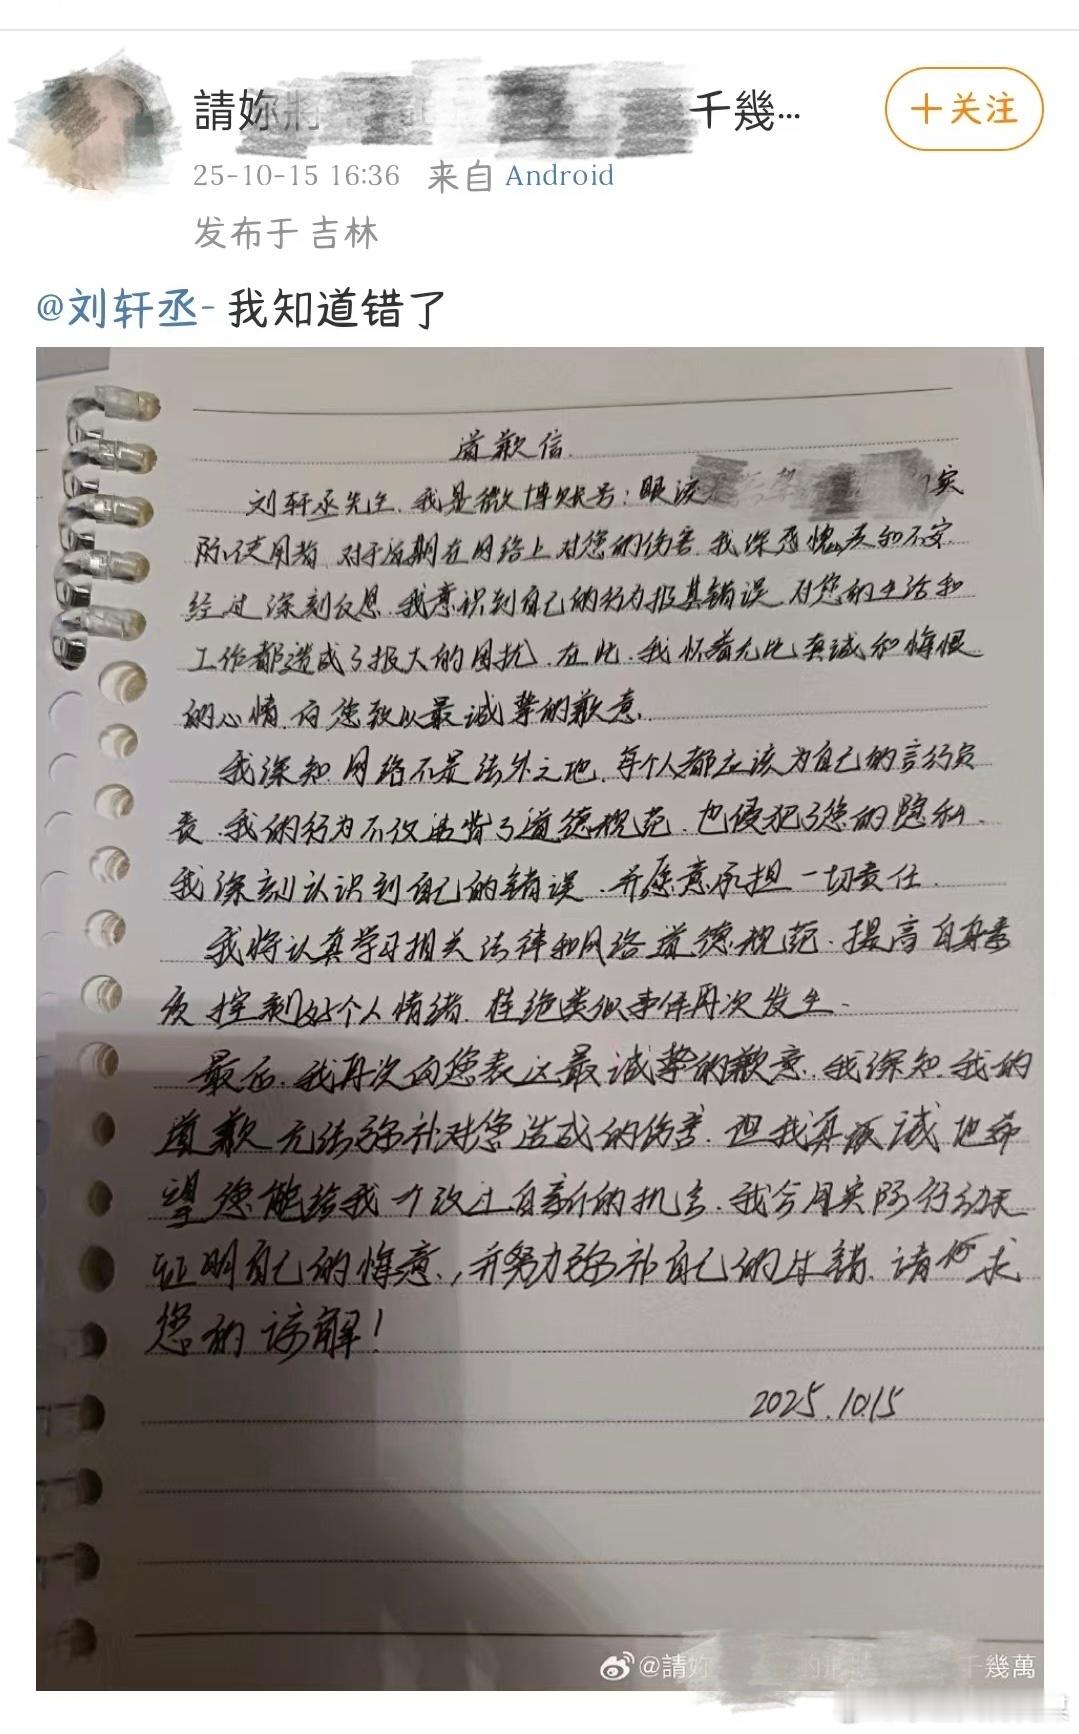 請妳 千幾…
+关注
25-10-15 16:36 来自 Android
发布于 吉林
@刘轩丞- 我知道错了
道歉信.
刘轩丞先生.我是微博账号:眼泪 实
际使用者.对于近期在网络上对您的伤害.我深感愧疚和不安.
经过深刻反思.我意识到自己的行为极其错误.对您的生活和
工作都造成了极大的困扰.在此.我怀着无比真诚和悔恨
的心情.向您致以最诚挚的歉意.
我深知网络不是法外之地.每个人都应该为自己的言行负
责.我的行为不仅违背了道德规范.也侵犯了您的隐私.
我深刻认识到自己的错误.并愿意承担一切责任.
我将认真学习相关法律和网络道德规范.提高自身素
质.控制好个人情绪.杜绝类似事件再次发生.
最后.我再次向您表达最诚挚的歉意.我深知.我的
道歉无法弥补对您造成的伤害.但我真诚地希
望您能给我一个改过自新的机会.我会用实际行动来
证明自己的悔意.,并努力弥补自己的过错.请 求
您的谅解!
2025.10.15
@請妳 的 千幾萬